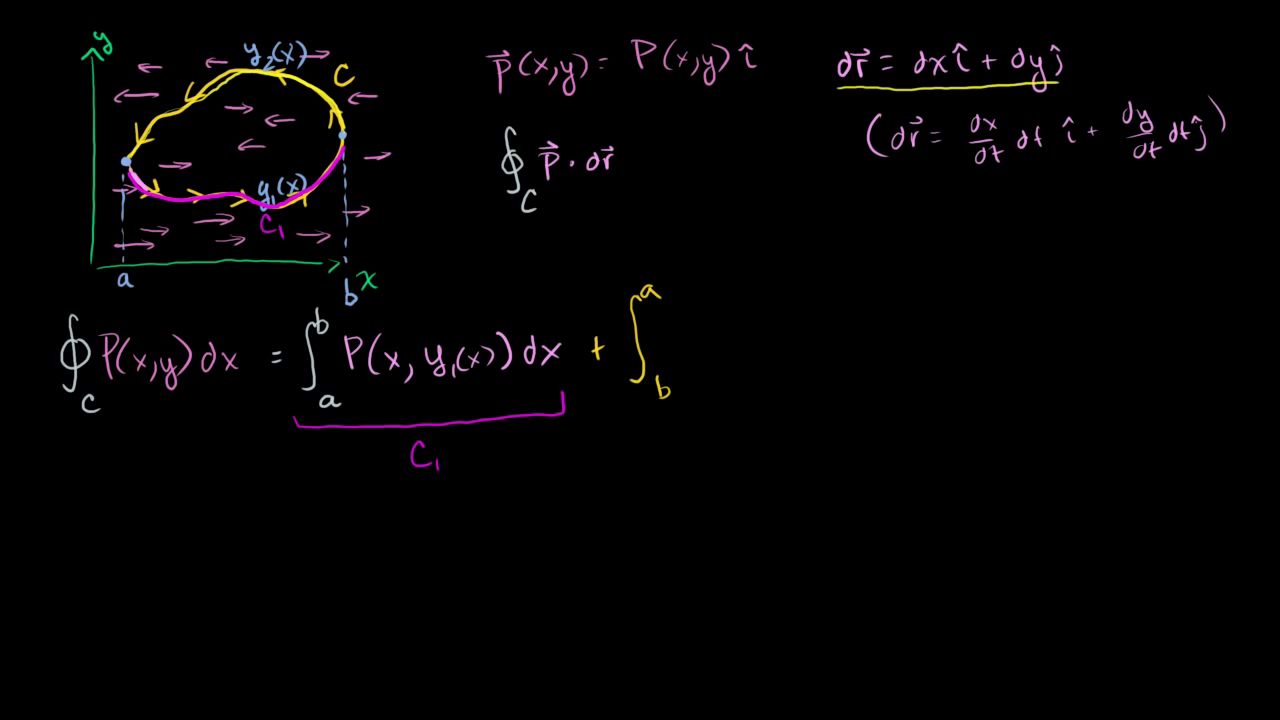 y
y₂(x)
C
y₁(x)
C₁
a
b
x
p⃗(x,y) = P(x,y) î
∮_C p⃗ · dr⃗
dr⃗ = dx î + dy ĵ
(dr⃗ = dx/dt dt î + dy/dt dt ĵ)
∮_C P(x,y) dx = ∫_a^b P(x, y₁(x)) dx + ∫_b^a
C₁